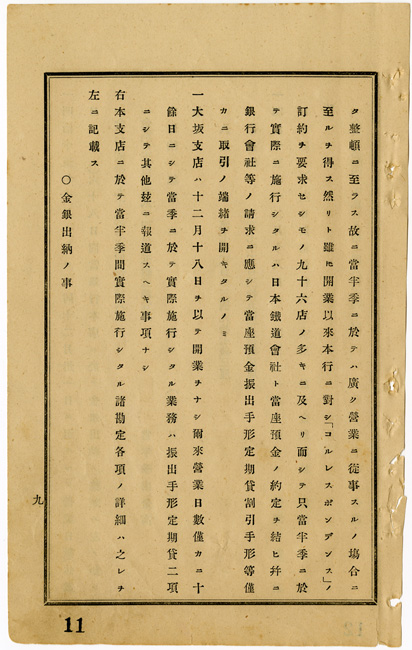 タ整頓ニ至ラス故ニ當半季ニ於テハ廣ク營業ニ從事スルノ塲合ニ
至ルヲ得ス然リト雖𪜈開業以來本行ニ對シ「コルレスポンデンス」ノ
訂約ヲ要求セシモノ九十六店ノ多キニ及ヘリ而シテ只當半季ニ於
テ實際ニ施行シタルハ日本鐵道會社ト當座預金ノ約定ヲ結ヒ幷ニ
銀行會社等ノ請求ニ應シテ當座預金振出手形定期貸割引手形等僅
カニ取引ノ端緒ヲ開キタルノミ
一大坂支店ハ十二月十八日ヲ以テ開業ヲナシ爾來營業日數僅カニ十
餘日ニシテ當季ニ於テ實際施行シタル業務ハ振出手形定期貸二項
ニシテ其他玆ニ報道スヘキ事項ナシ
右本支店ニ於テ當半季間實際施行シタル諸勘定各項ノ詳細ハ之レヲ
左ニ記載ス
○金銀出納ノ事
九
11